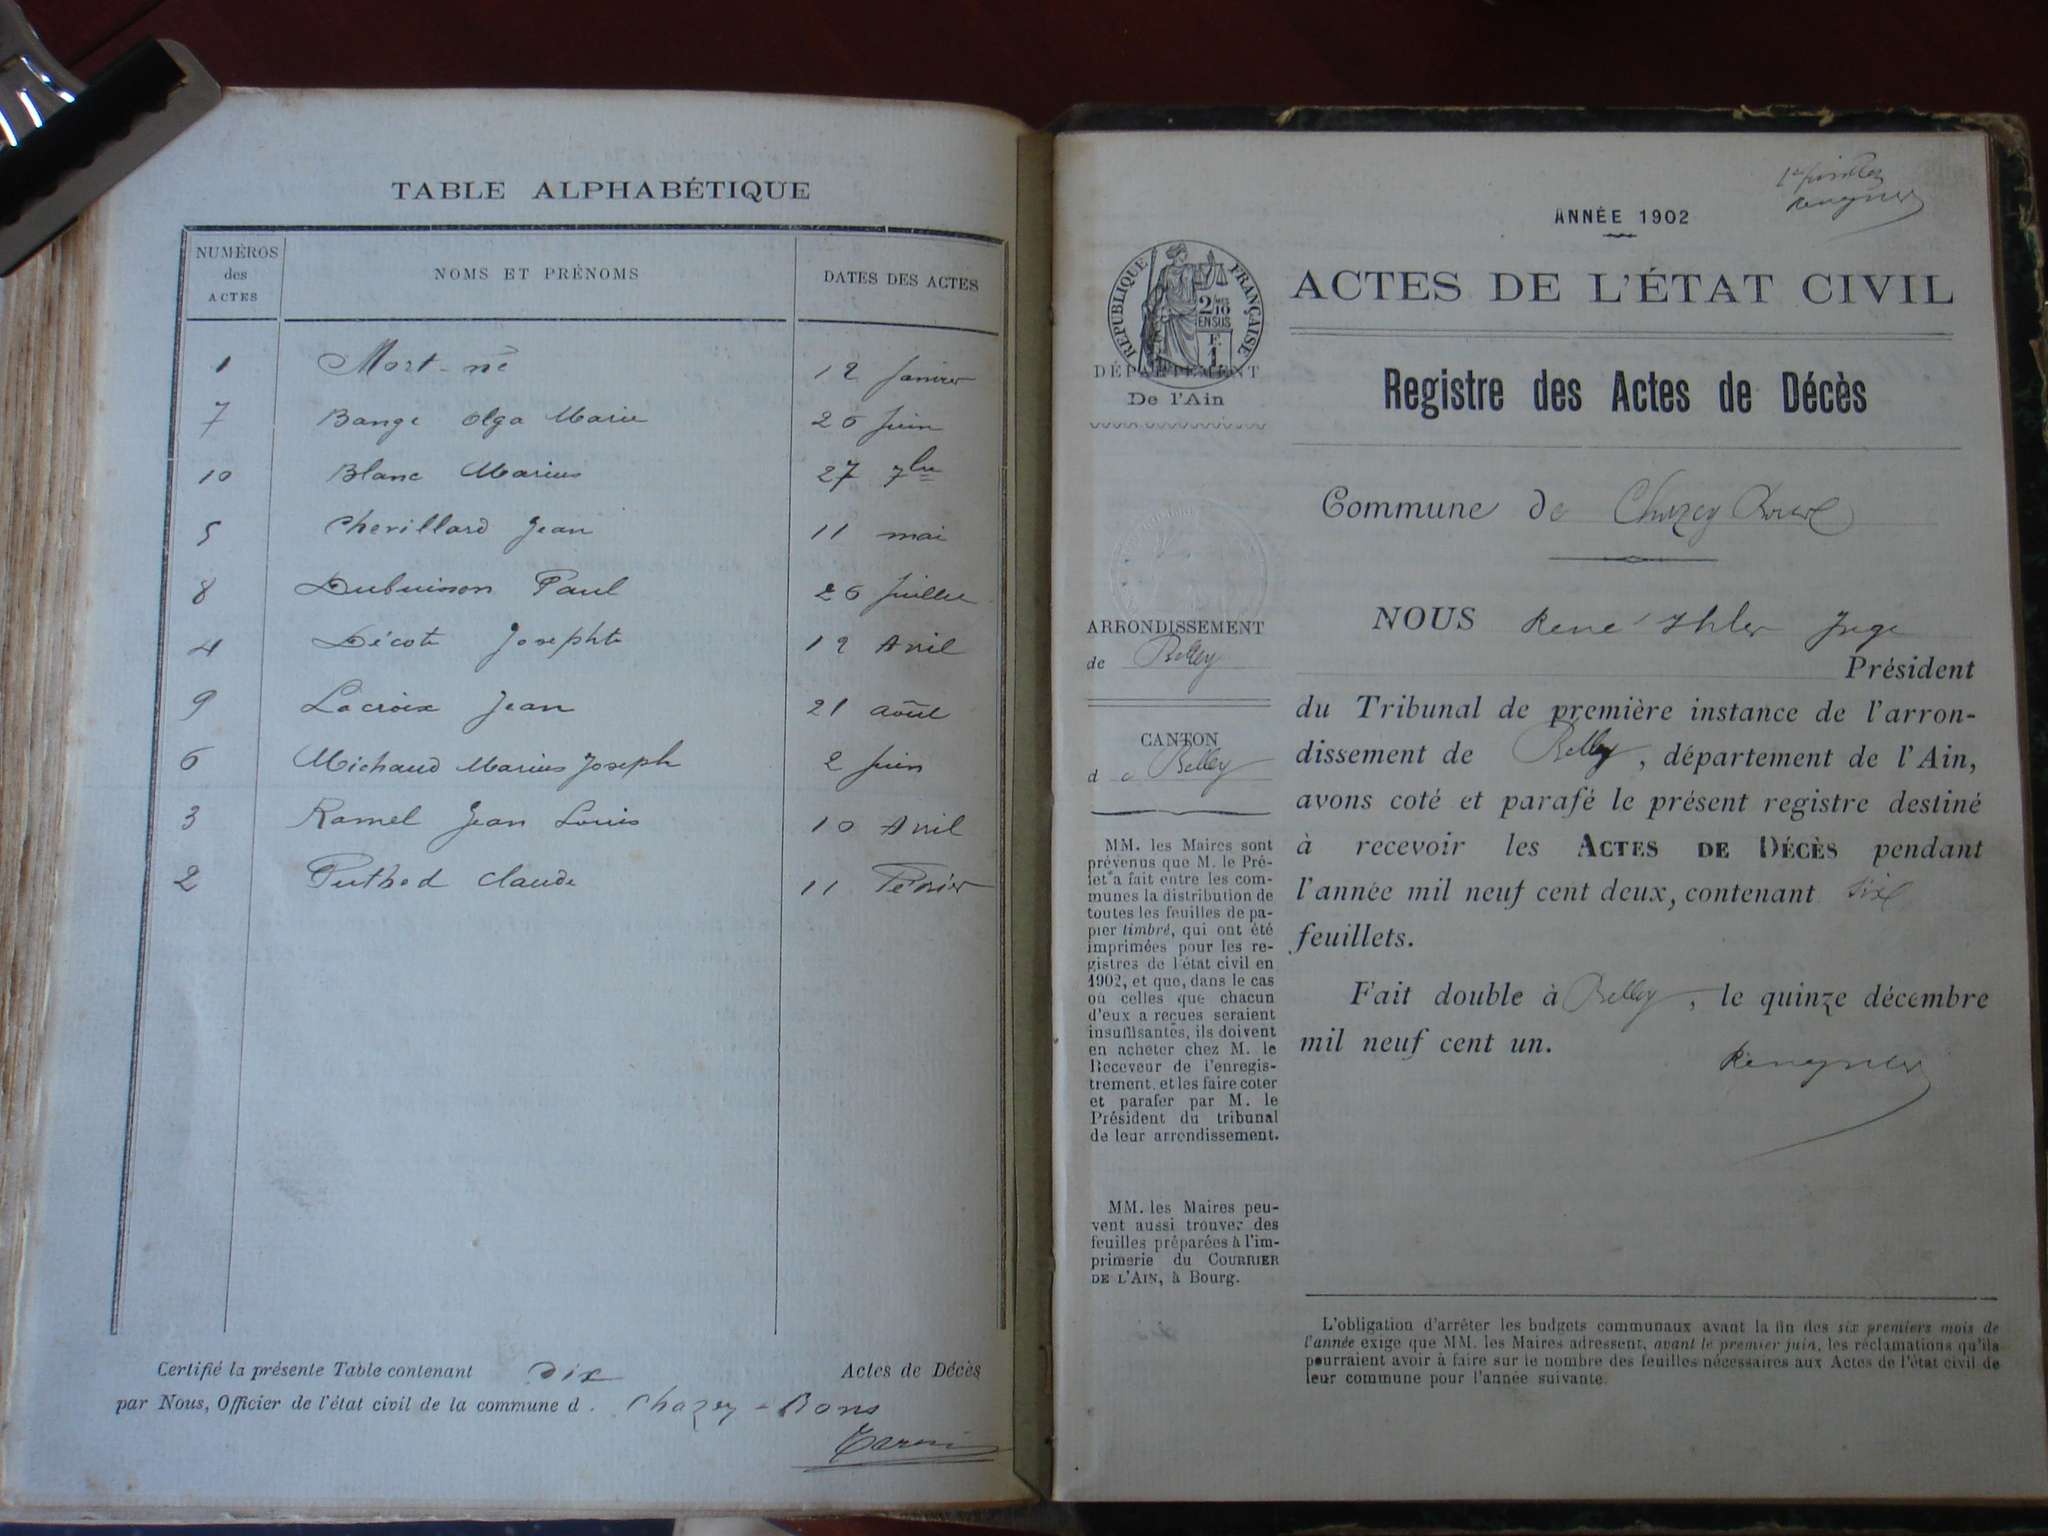 TABLE ALPHABÉTIQUE
NUMÉROS des ACTES
NOMS ET PRÉNOMS
DATES DES ACTES
1 Mort-né 12 Janvier
7 Bange Olga Marie 26 Juin
10 Blanc Marius 27 7bre
5 Chevillard Jean 11 mai
8 Dubuisson Paul 26 Juillet
4 Décote Josephte 12 Avril
9 Lacroix Jean 21 août
6 Michaud Marius Joseph 2 Juin
3 Ramel Jean Louis 10 Avril
2 Puthod Claude 11 Février
Certifié la présente Table contenant dix Actes de Décès
par Nous, Officier de l'état civil de la commune d. Chazey-Bons
ANNÉE 1902
RÉPUBLIQUE FRANÇAISE
2/10 EN SUS
F. 1
ACTES DE L'ÉTAT CIVIL
DÉPARTEMENT
De l'Ain
Registre des Actes de Décès
Commune de Chazey Bons
ARRONDISSEMENT
de Belley
CANTON
de Belley
MM. les Maires sont
prévenus que M. le Pré-
fet a fait entre les com-
munes la distribution de
toutes les feuilles de pa-
pier timbré, qui ont été
imprimées pour les re-
gistres de l'état civil en
1902, et que, dans le cas
où celles que chacun
d'eux a reçues seraient
insuffisantes, ils doivent
en acheter chez M. le
Receveur de l'enregis-
trement, et les faire coter
et parafer par M. le
Président du tribunal
de leur arrondissement.
MM. les Maires peu-
vent aussi trouver des
feuilles préparées à l'im-
primerie du COURRIER
DE L'AIN, à Bourg.
NOUS René Ihler Juge
Président
du Tribunal de première instance de l'arron-
dissement de Belley, département de l'Ain,
avons coté et parafé le présent registre destiné
à recevoir les ACTES DE DÉCÈS pendant
l'année mil neuf cent deux, contenant six
feuillets.
Fait double à Belley, le quinze décembre
mil neuf cent un.
L'obligation d'arrêter les budgets communaux avant la fin des six premiers mois de
l'année exige que MM. les Maires adressent, avant le premier juin, les réclamations qu'ils
pourraient avoir à faire sur le nombre des feuilles nécessaires aux Actes de l'état civil de
leur commune pour l'année suivante.